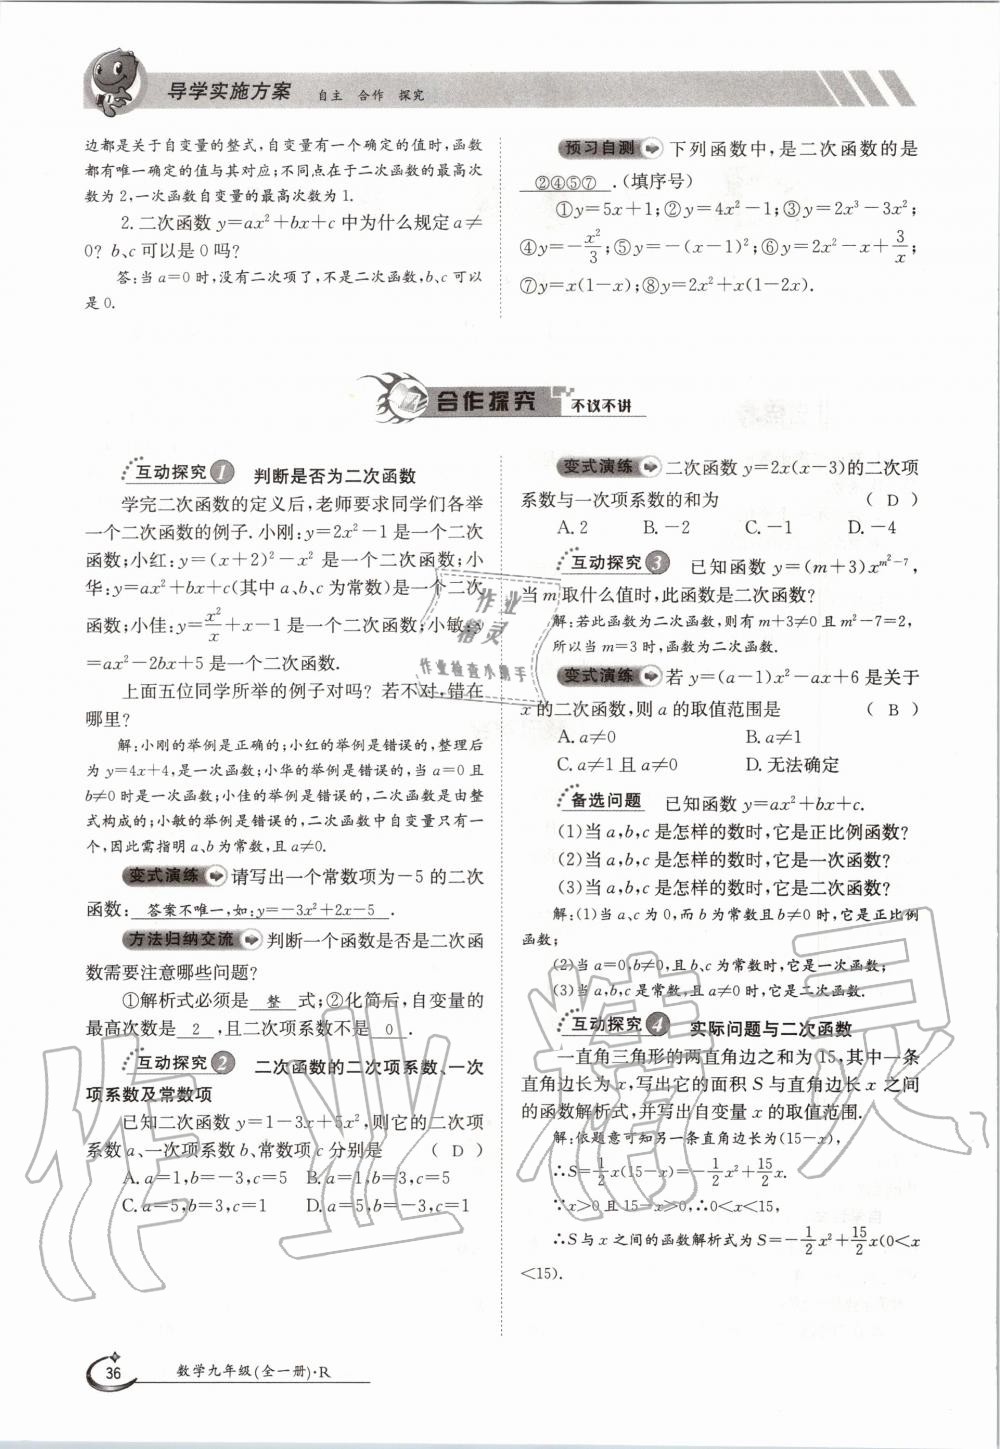 导学实施方案 自主 合作 探究
边都是关于自变量的整式,自变量有一个确定的值时,函数
都有唯一确定的值与其对应;不同点在于二次函数的最高次
数为2,一次函数自变量的最高次数为1.
2.二次函数y=ax²+bx+c中为什么规定a≠
0? b、c可以是0吗?
答:当a=0时,没有二次项了,不是二次函数,b、c可以
是0.
预习自测 下列函数中,是二次函数的是
②④⑤⑦ .(填序号)
①y=5x+1;②y=4x²-1;③y=2x³-3x²;
④y=-x²/3;⑤y=-(x-1)²;⑥y=2x²-x+3/x;
⑦y=x(1-x);⑧y=2x²+x(1-2x).
合作探究 不议不讲
互动探究1 判断是否为二次函数
学完二次函数的定义后,老师要求同学们各举
一个二次函数的例子.小刚:y=2x²-1是一个二次
函数;小红:y=(x+2)²-x²是一个二次函数;小
华:y=ax²+bx+c(其中a、b、c为常数)是一个二次
函数;小佳:y=x²/x+x-1是一个二次函数;小敏:y
=ax²-2bx+5是一个二次函数.
上面五位同学所举的例子对吗? 若不对,错在
哪里?
解:小刚的举例是正确的;小红的举例是错误的,整理后
为y=4x+4,是一次函数;小华的举例是错误的,当a=0且
b≠0时是一次函数;小佳的举例是错误的,二次函数是由整
式构成的;小敏的举例是错误的,二次函数中自变量只有一
个,因此需指明a、b为常数,且a≠0.
变式演练 请写出一个常数项为-5的二次
函数: 答案不唯一,如:y=-3x²+2x-5 .
方法归纳交流 判断一个函数是否是二次函
数需要注意哪些问题?
①解析式必须是 整 式;②化简后,自变量的
最高次数是 2 ,且二次项系数不是 0 .
互动探究2 二次函数的二次项系数、一次
项系数及常数项
已知二次函数y=1-3x+5x²,则它的二次项
系数a、一次项系数b、常数项c分别是 ( D )
A.a=1,b=-3,c=5 B.a=1,b=3,c=5
C.a=5,b=3,c=1 D.a=5,b=-3,c=1
变式演练 二次函数y=2x(x-3)的二次项
系数与一次项系数的和为 ( D )
A.2 B.-2 C.-1 D.-4
互动探究3 已知函数y=(m+3)x^(m²-7),
当m取什么值时,此函数是二次函数?
解:若此函数为二次函数,则有m+3≠0且m²-7=2,
所以当m=3时,函数为二次函数.
变式演练 若y=(a-1)x²-ax+6是关于
x的二次函数,则a的取值范围是 ( B )
A.a≠0 B.a≠1
C.a≠1且a≠0 D.无法确定
备选问题 已知函数y=ax²+bx+c.
(1)当a,b,c是怎样的数时,它是正比例函数?
(2)当a,b,c是怎样的数时,它是一次函数?
(3)当a,b,c是怎样的数时,它是二次函数?
解:(1)当a、c为0,而b为常数且b≠0时,它是正比例
函数;
(2)当a=0,b≠0,且b、c为常数时,它是一次函数;
(3)当a,b,c是常数,且a≠0时,它是二次函数.
互动探究4 实际问题与二次函数
一直角三角形的两直角边之和为15,其中一条
直角边长为x,写出它的面积S与直角边长x之间
的函数解析式,并写出自变量x的取值范围.
解:依题意可知另一条直角边长为(15-x),
∴S=1/2x(15-x)=-1/2x²+15/2x.
∵x>0且15-x>0,∴0<x<15,
∴S与x之间的函数解析式为S=-1/2x²+15/2x(0<x
<15).
作业精灵
作业检查小帮手
作业精灵
36 数学九年级(全一册)·R